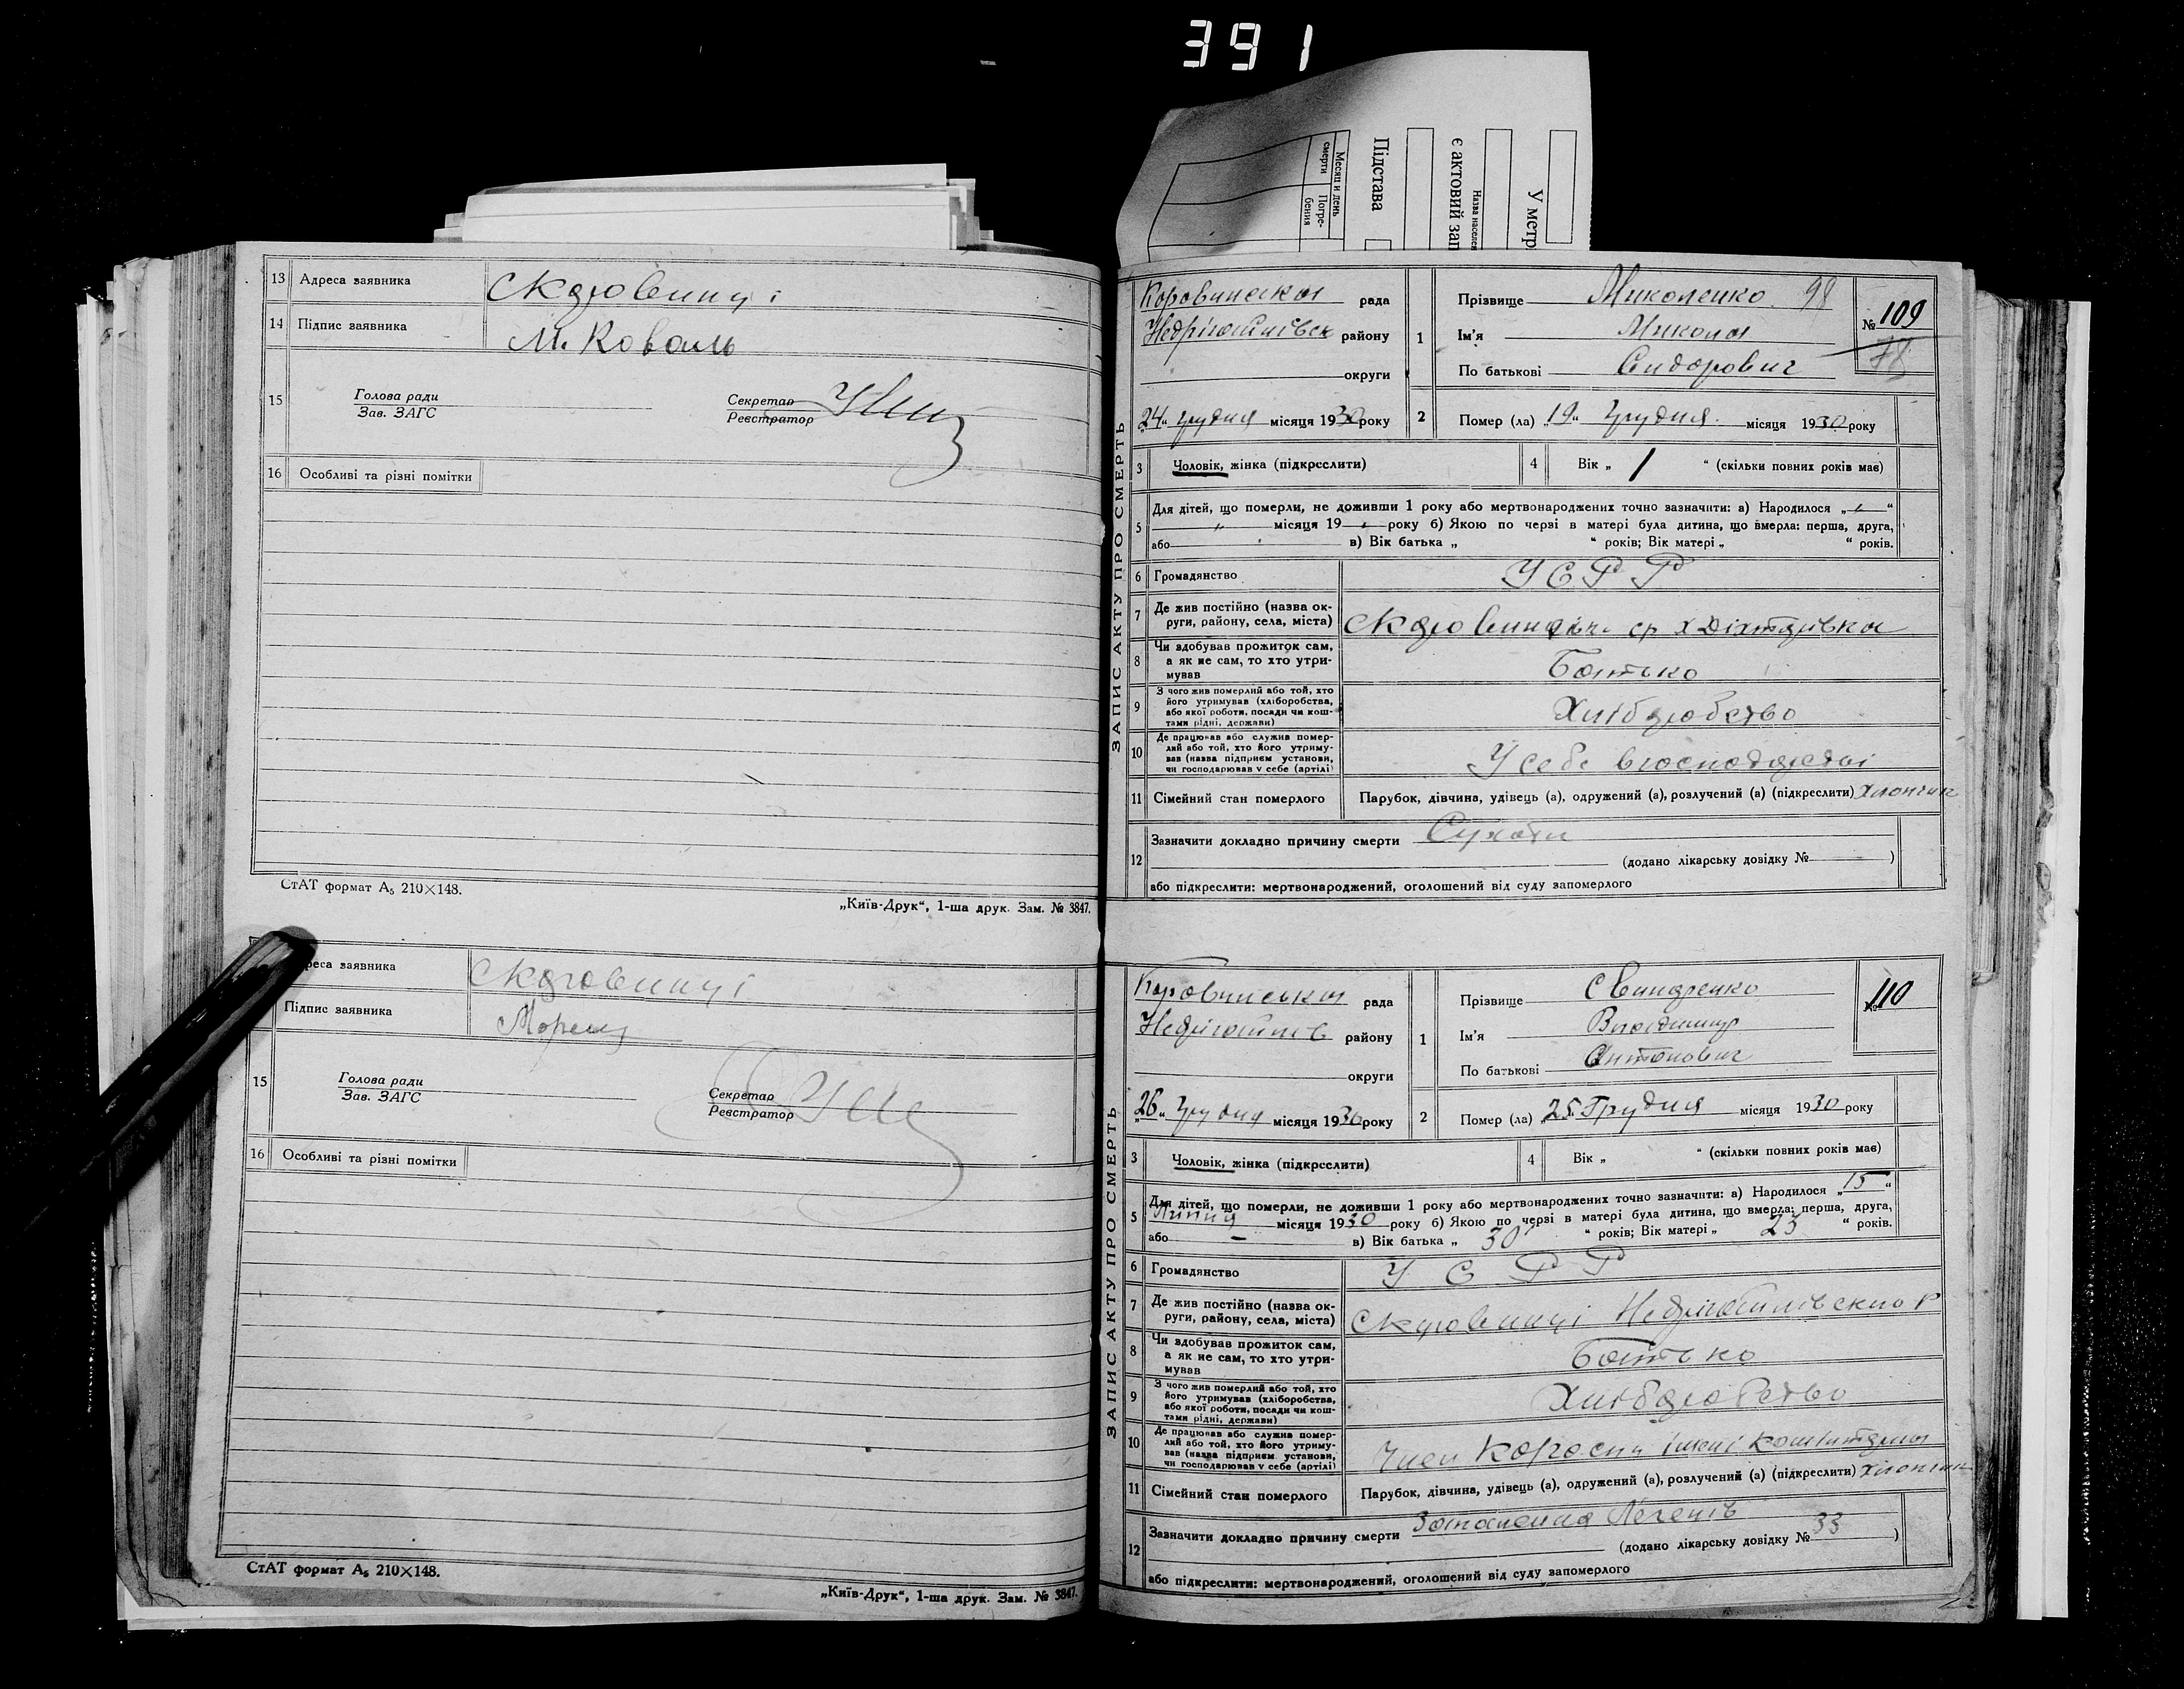 391
Месяц и день
смерти
Погре-
бения
Підстава
є актовий зап
Назва населен
У метр
13 Адреса заявника
14 Підпис заявника М. Коваль
15 Голова ради
Зав. ЗАГС
Секретар
Реєстратор
16 Особливі та різні помітки
СтАТ формат А5 210×148.
„Київ-Друк“, 1-ша друк. Зам. № 3847.
реса заявника
Підпис заявника
15 Голова ради
Зав. ЗАГС
Секретар
Реєстратор
16 Особливі та різні помітки
СтАТ формат А5 210×148.
„Київ-Друк“, 1-ша друк. Зам. № 3847.
ЗАПИС АКТУ ПРО СМЕРТЬ
Коровинська рада
району
округи
„24“ грудня місяця 1930 року
1 Прізвище Миколенко 98
Ім'я Микола
По батькові Сидорович
№ 109
78
2 Помер (ла) „19“ Грудня місяця 1930 року
3 Чоловік, жінка (підкреслити)
4 Вік „ 1 “ (скільки повних років має)
5 Для дітей, що померли, не доживши 1 року або мертвонароджених точно зазначити: а) Народилося „ “
місяця 19 року б) Якою по черзі в матері була дитина, що вмерла: перша, друга,
або в) Вік батька „ “ років; Вік матері „ “ років.
6 Громадянство УСРР
7 Де жив постійно (назва ок-
руги, району, села, міста)
8 Чи здобував прожиток сам,
а як не сам, то хто утри-
мував Батько
9 З чого жив померлий або той, хто
його утримував (хліборобства,
або якої роботи, посади чи кош-
тами рідні, держави) Хліборобство
10 Де працював або служив помер-
лий або той, хто його утриму-
вав (назва підприєм установи,
чи господарював у себе (артілі) У себе в господарстві
11 Сімейний стан померлого Парубок, дівчина, удівець (а), одружений (а), розлучений (а) (підкреслити) Хлопчик
12 Зазначити докладно причину смерти Сухоти
(додано лікарську довідку № )
або підкреслити: мертвонароджений, оголошений від суду запомерлого
ЗАПИС АКТУ ПРО СМЕРТЬ
Коровинська рада
району
округи
„26“ Грудня місяця 1930 року
1 Прізвище Свинаренко
Ім'я Владимир
По батькові Антонович
№ 110
2 Помер (ла) „25“ Грудня місяця 1930 року
3 Чоловік, жінка (підкреслити)
4 Вік „ “ (скільки повних років має)
5 Для дітей, що померли, не доживши 1 року або мертвонароджених точно зазначити: а) Народилося „15“
Липня місяця 1930 року б) Якою по черзі в матері була дитина, що вмерла: перша, друга,
або – в) Вік батька „ 30 “ років; Вік матері „ 23 “ років.
6 Громадянство УСРР
7 Де жив постійно (назва ок-
руги, району, села, міста)
8 Чи здобував прожиток сам,
а як не сам, то хто утри-
мував Батько
9 З чого жив померлий або той, хто
його утримував (хліборобства,
або якої роботи, посади чи кош-
тами рідні, держави) Хліборобство
10 Де працював або служив помер-
лий або той, хто його утриму-
вав (назва підприєм установи,
чи господарював у себе (артілі) Член
11 Сімейний стан померлого Парубок, дівчина, удівець (а), одружений (а), розлучений (а) (підкреслити) Хлопчик
12 Зазначити докладно причину смерти Запалення Легенів
(додано лікарську довідку № 33 )
або підкреслити: мертвонароджений, оголошений від суду запомерлого